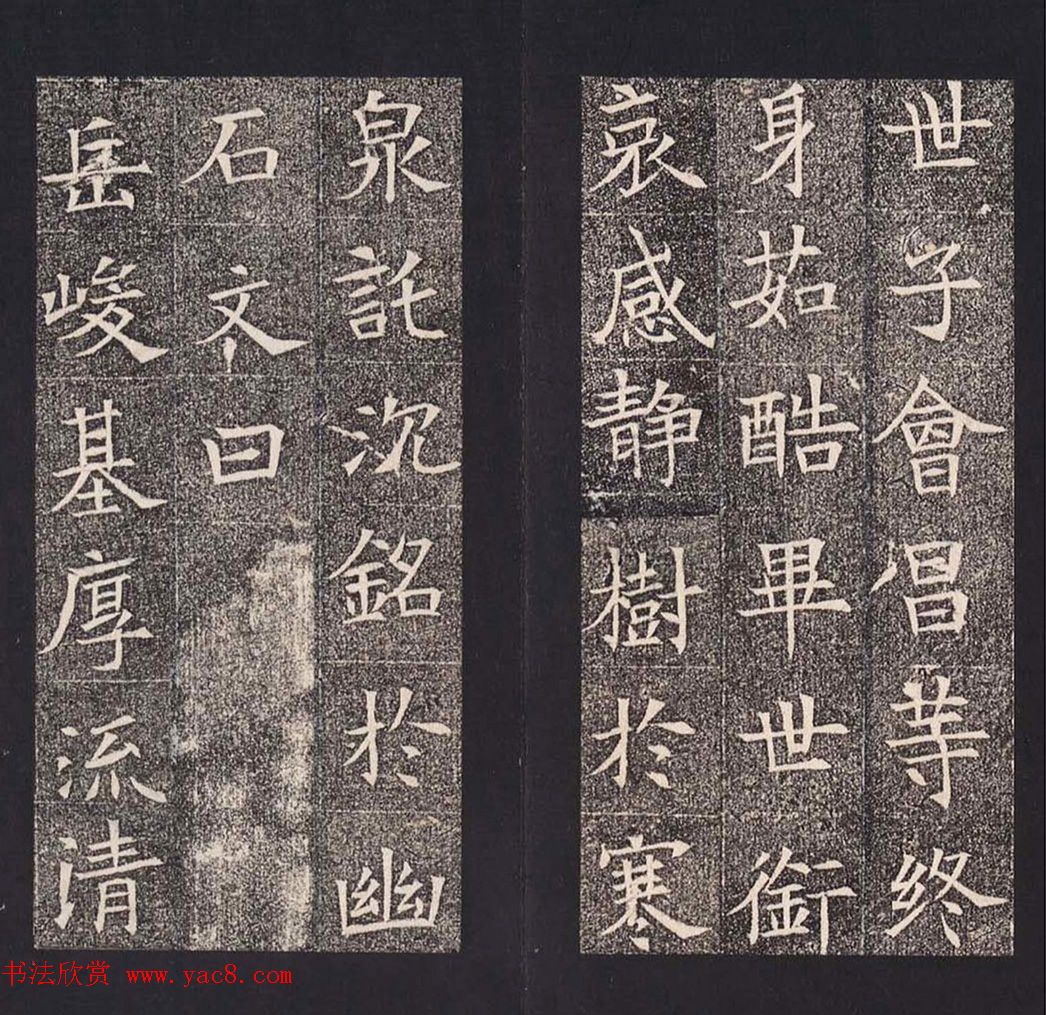 世子會昌等終
身茹酷畢世銜
哀感静樹於寒
泉託沉銘於幽
石文曰
岳峻基厚流清
书法欣赏 www.yac8.com